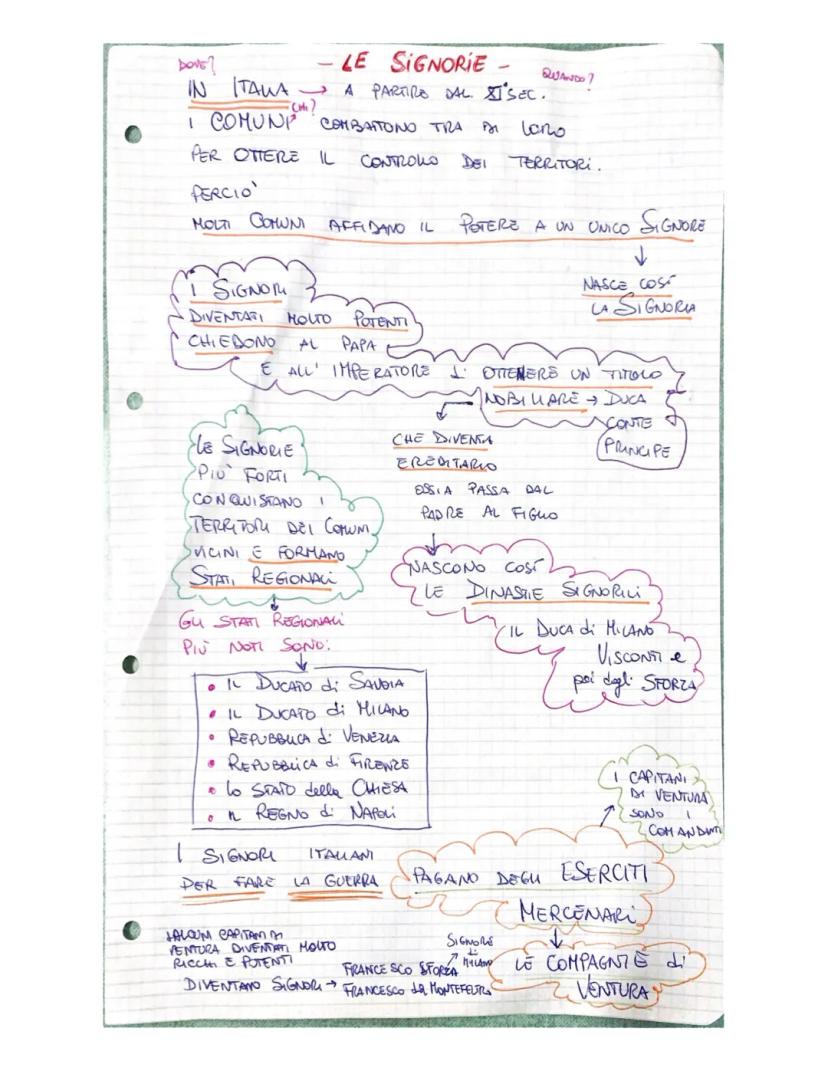 - LE SIGNORIE -
DOVE? QUANDO?
IN ITALIA → A PARTIRE DAL XI° SEC.
CHI?
I COMUNI COMBATTONO TRA DI LORO
PER OTTERE IL CONTROLLO DEI TERRITORI.
PERCIO'
MOLTI COMUNI AFFIDANO IL POTERE A UN UNICO SIGNORE
↓
NASCE COSÍ
LA SIGNORIA
I SIGNORI
DIVENTATI MOLTO POTENTI
CHIEDONO AL PAPA
E ALL' IMPERATORE DI OTTENERE UN TITOLO
NOBILIARE → DUCA
CONTE
PRINCIPE
CHE DIVENTA
EREDITARIO
OSSIA PASSA DAL
PADRE AL FIGLIO
NASCONO COSÍ
LE DINASTIE SIGNORILI
IL DUCA di MILANO
VISCONTI e
poi degli SFORZA
LE SIGNORIE
PIU' FORTI
CONQUISTANO I
TERRITORI DEI COMUNI
VICINI E FORMANO
STATI REGIONALI
GLI STATI REGIONALI
PIÙ NOTI SONO:
• IL DUCATO di SAVOIA
• IL DUCATO di MILANO
• REPUBBLICA di VENEZIA
• REPUBBLICA di FIRENZE
• LO STATO della CHIESA
• IL REGNO di NAPOLI
I SIGNORI ITALIANI
PER FARE LA GUERRA
PAGANO DEGLI ESERCITI
MERCENARI
I CAPITANI
DI VENTURA
SONO I
COMANDANTI
LE COMPAGNIE di
VENTURA
ALCUNI CAPITANI DI
VENTURA DIVENTATI MOLTO
RICCHI E POTENTI
DIVENTANO SIGNORI → FRANCESCO SFORZA
SIGNORE
di
MILANO
FRANCESCO DA MONTEFELTRO